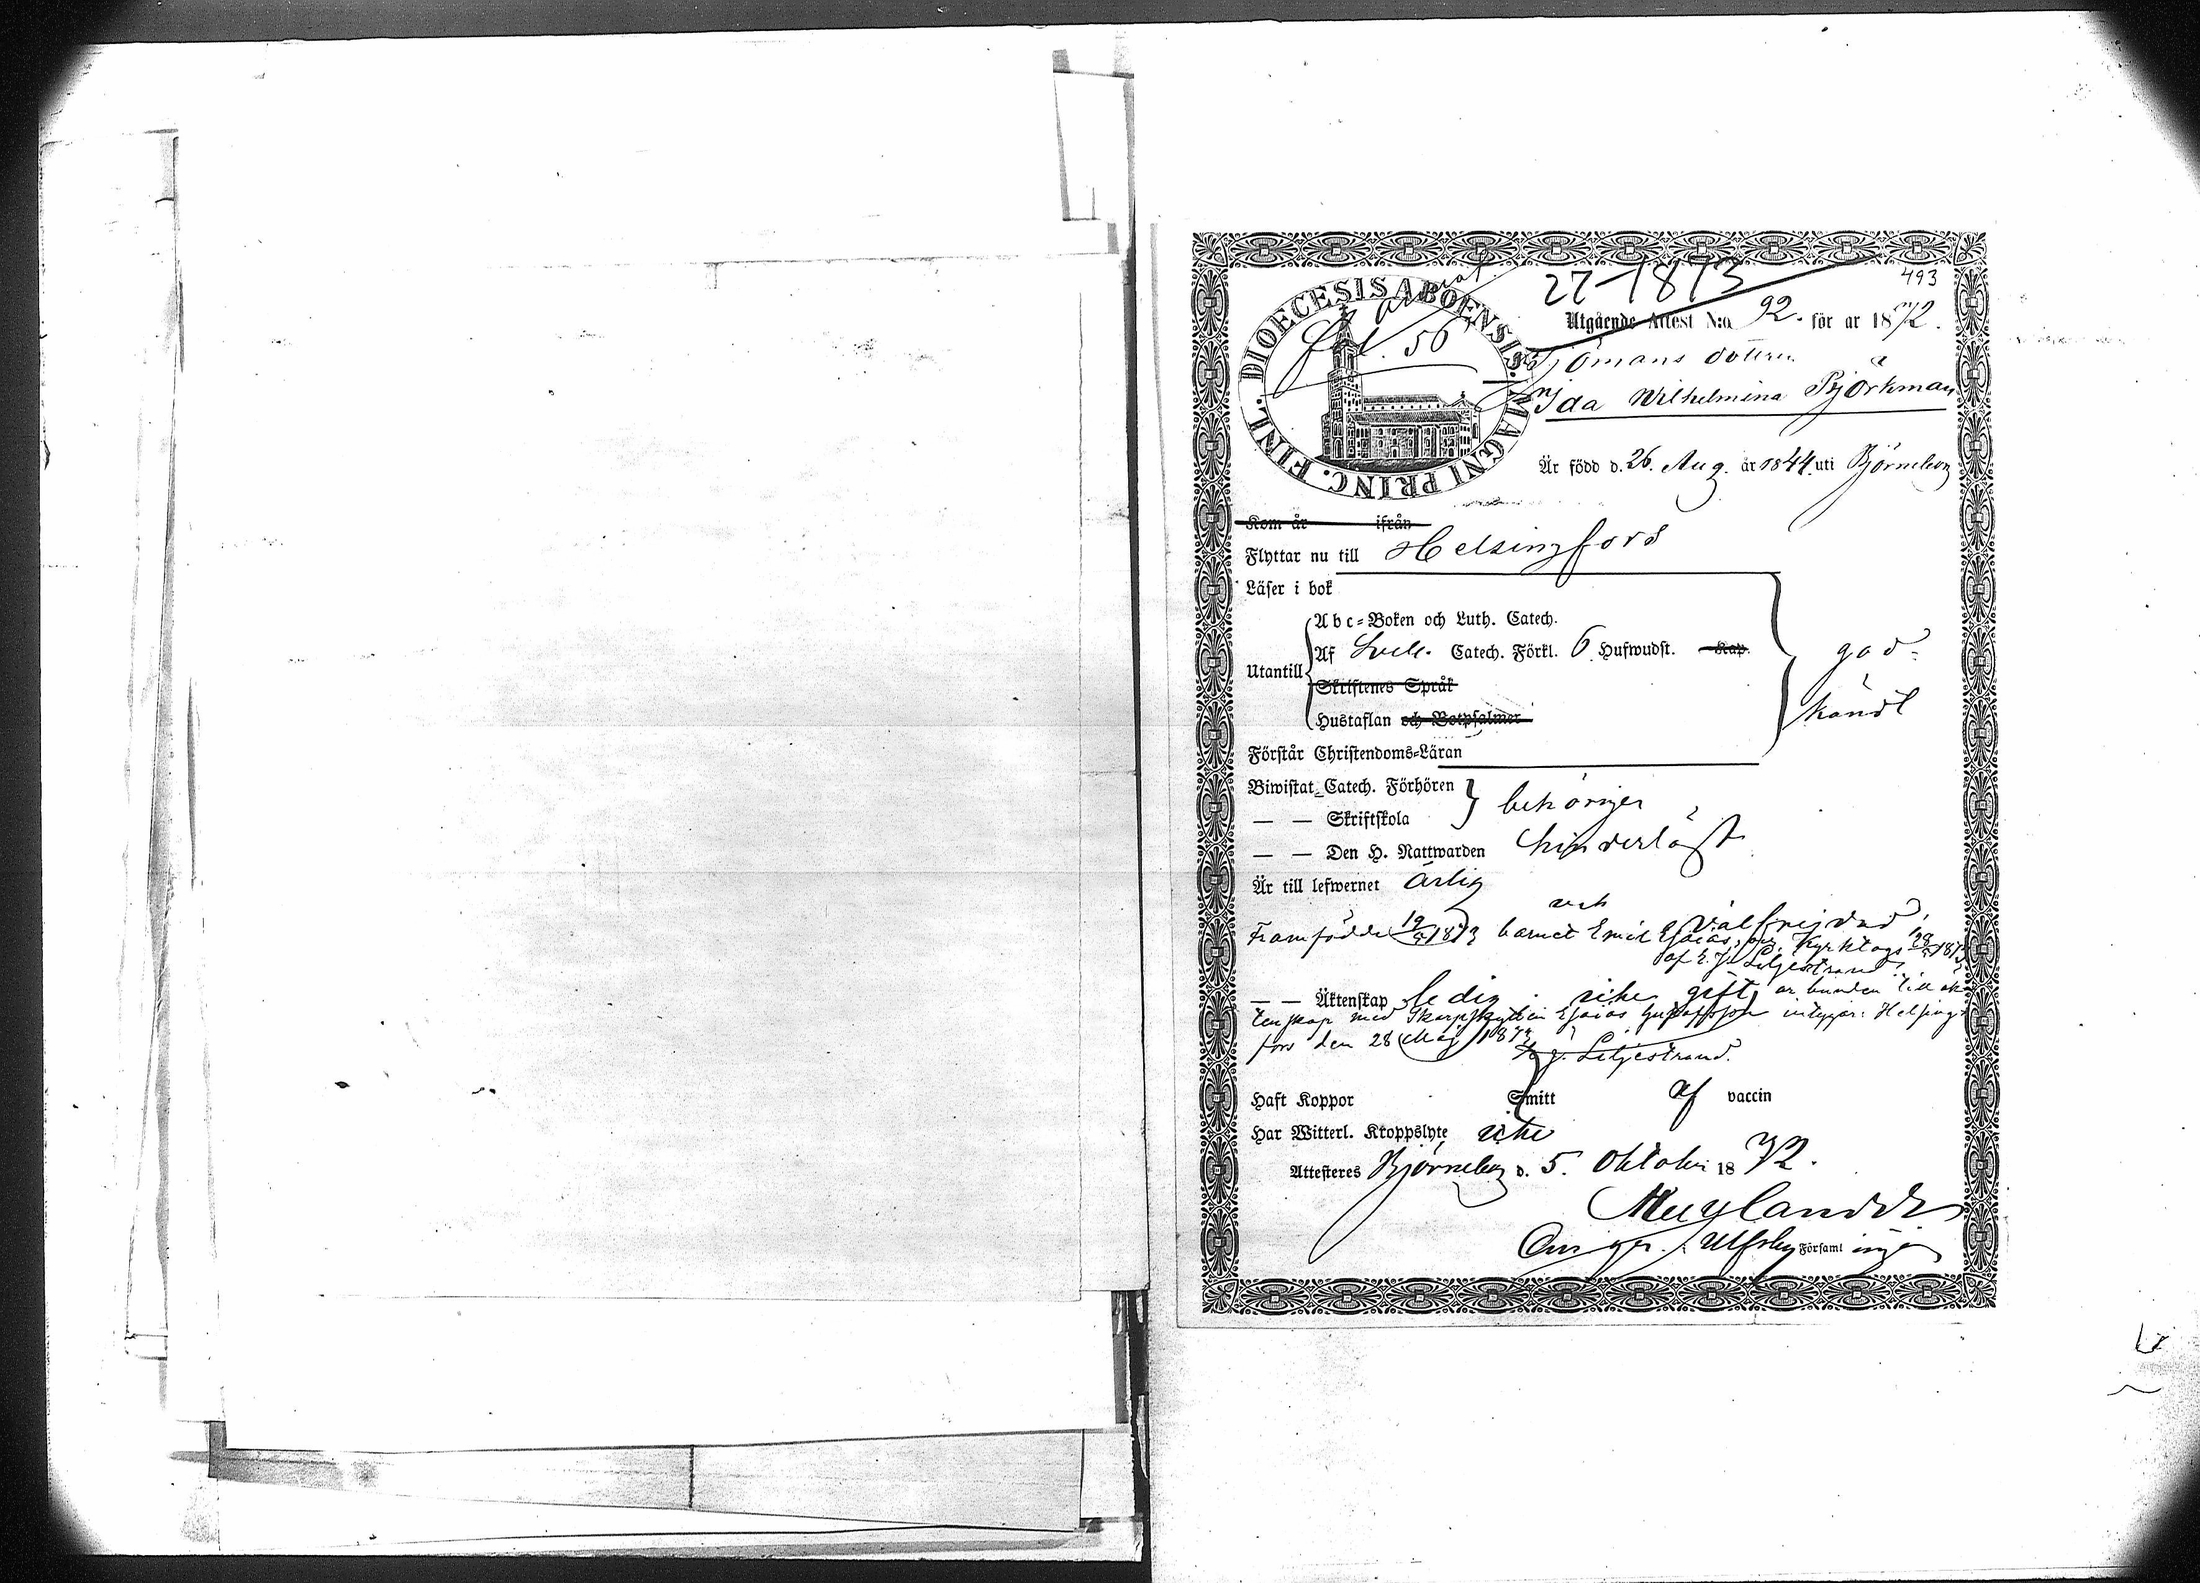 27-1873
493
DIOECESIS ABOENSIS. MAGNI PRINC. FINL.
56
Utgående Attest N:o 92. för år 1872.
Sjömans dottren
Ida Wilhelmina Björkman
Är född d. 26. Aug. år 1844. uti Björneborg
Kom år ifrån
Flyttar nu till Helsingfors
Läser i bok
Abc-Boken och Luth. Catech.
Utantill
Af Sveb. Catech. Förkl. 6. Hufwudst. Kap.
Skriftenes Språk
Hustaflan och Botpsalmer
god-
känt
Förstår Christendoms-Läran
Biwistat Catech. Förhören
— — Skriftskola
behörigen
— — Den H. Nattwarden hinderlöst
Är till lefwernet ärlig
och välfrejdad,
Framfödde 19/5 1873 barnet Emil Esaias, Kyrktags 28/5 1873
af E. J. Liljestrand.
— — Äktenskap ledig, icke gift, är bunden till äk-
tenskap med Skarpskytten Esaias Gustafsson intygar: Helsing-
fors den 28 Maj 1873 J. Liljestrand.
Haft Koppor Smitt af vaccin
Har Witterl. Kroppslyte icke
Attesteres Björneborg d. 5. Oktober 1872.
Ulfsby Församl